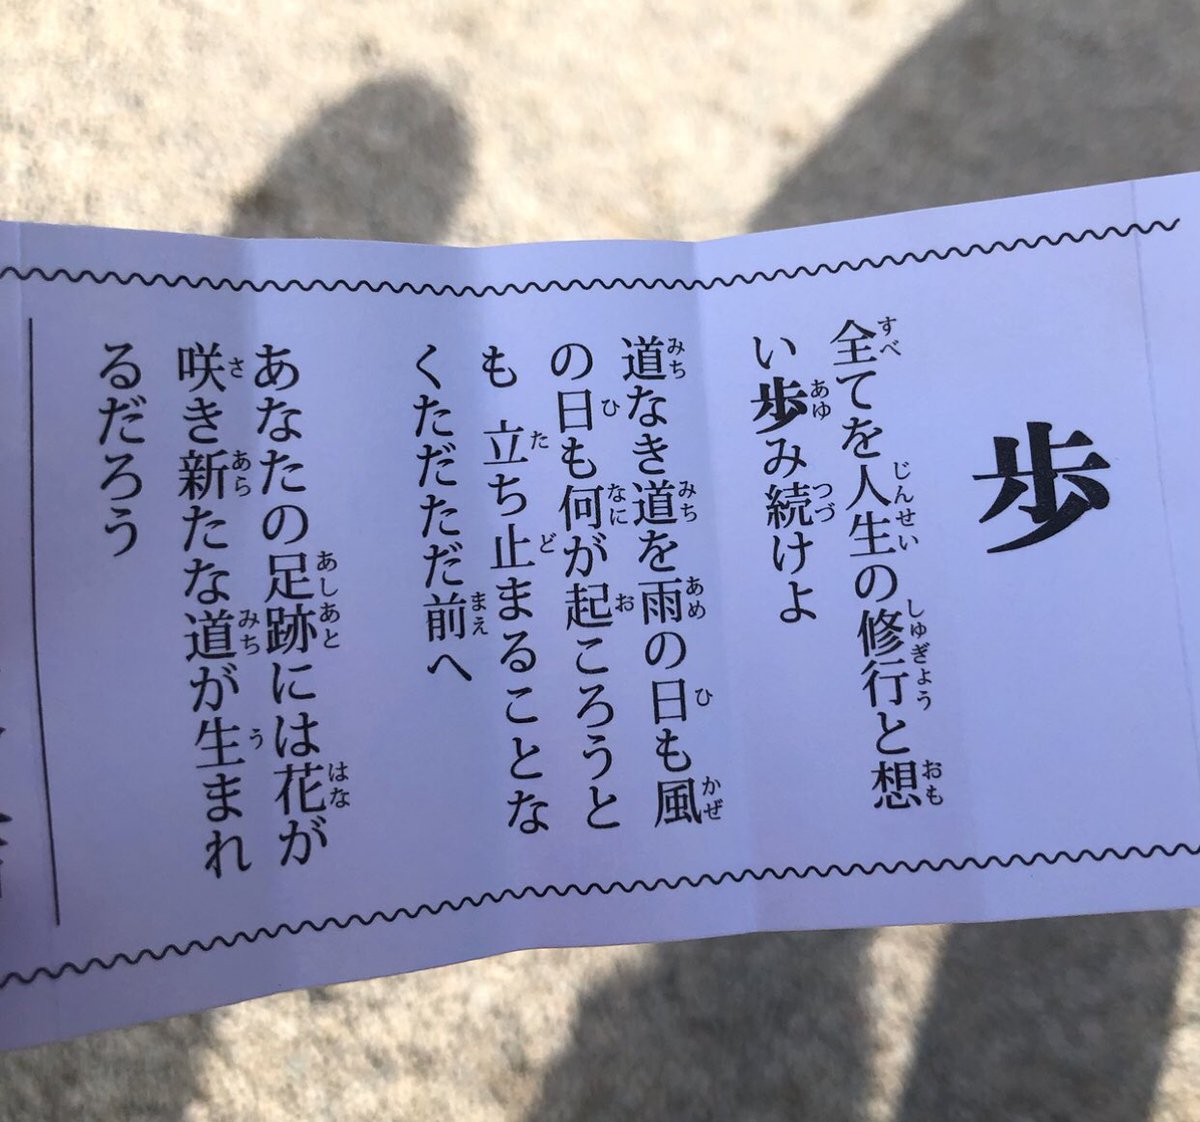 歩
全てを人生の修行と想
い歩み続けよ
道なき道を雨の日も風
の日も何が起ころうと
も 立ち止まることな
くただただ前へ
あなたの足跡には花が
咲き新たな道が生まれ
るだろう